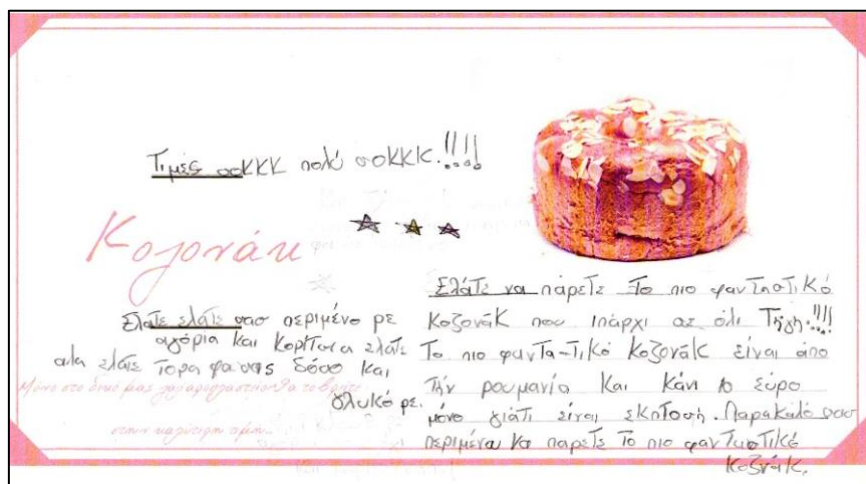 Τιμές σοΚΚΚ πολύ σοΚΚΚ.!!!!
Κοζονάκ
Ελάτε ελάτε σασ περιμένο ρε
αγόρια και Κορίτσια ελάτε
ελάτε τορα φα σας δόσο και
γλυκό ρε.
Μόνο στο δικό μας ζαχαροπλαστείο θα το βρείτε
στην καλύτερη τιμή..
Ελάτε να πάρετε το πιο φανταστικό
Κοζονάκ που ιπάρχι σε όλι Τη γη.!!!!
Το πιο φαντα-τικό Κοζονάκ είναι απο
τήν ρουμανία και κάνι 10 έυρο
μόνο γιάτι είναι εκπτοσή. Παρακαλό σασ
περιμένο να παρετε το πιο φανταστικό
Κοζνάκ.